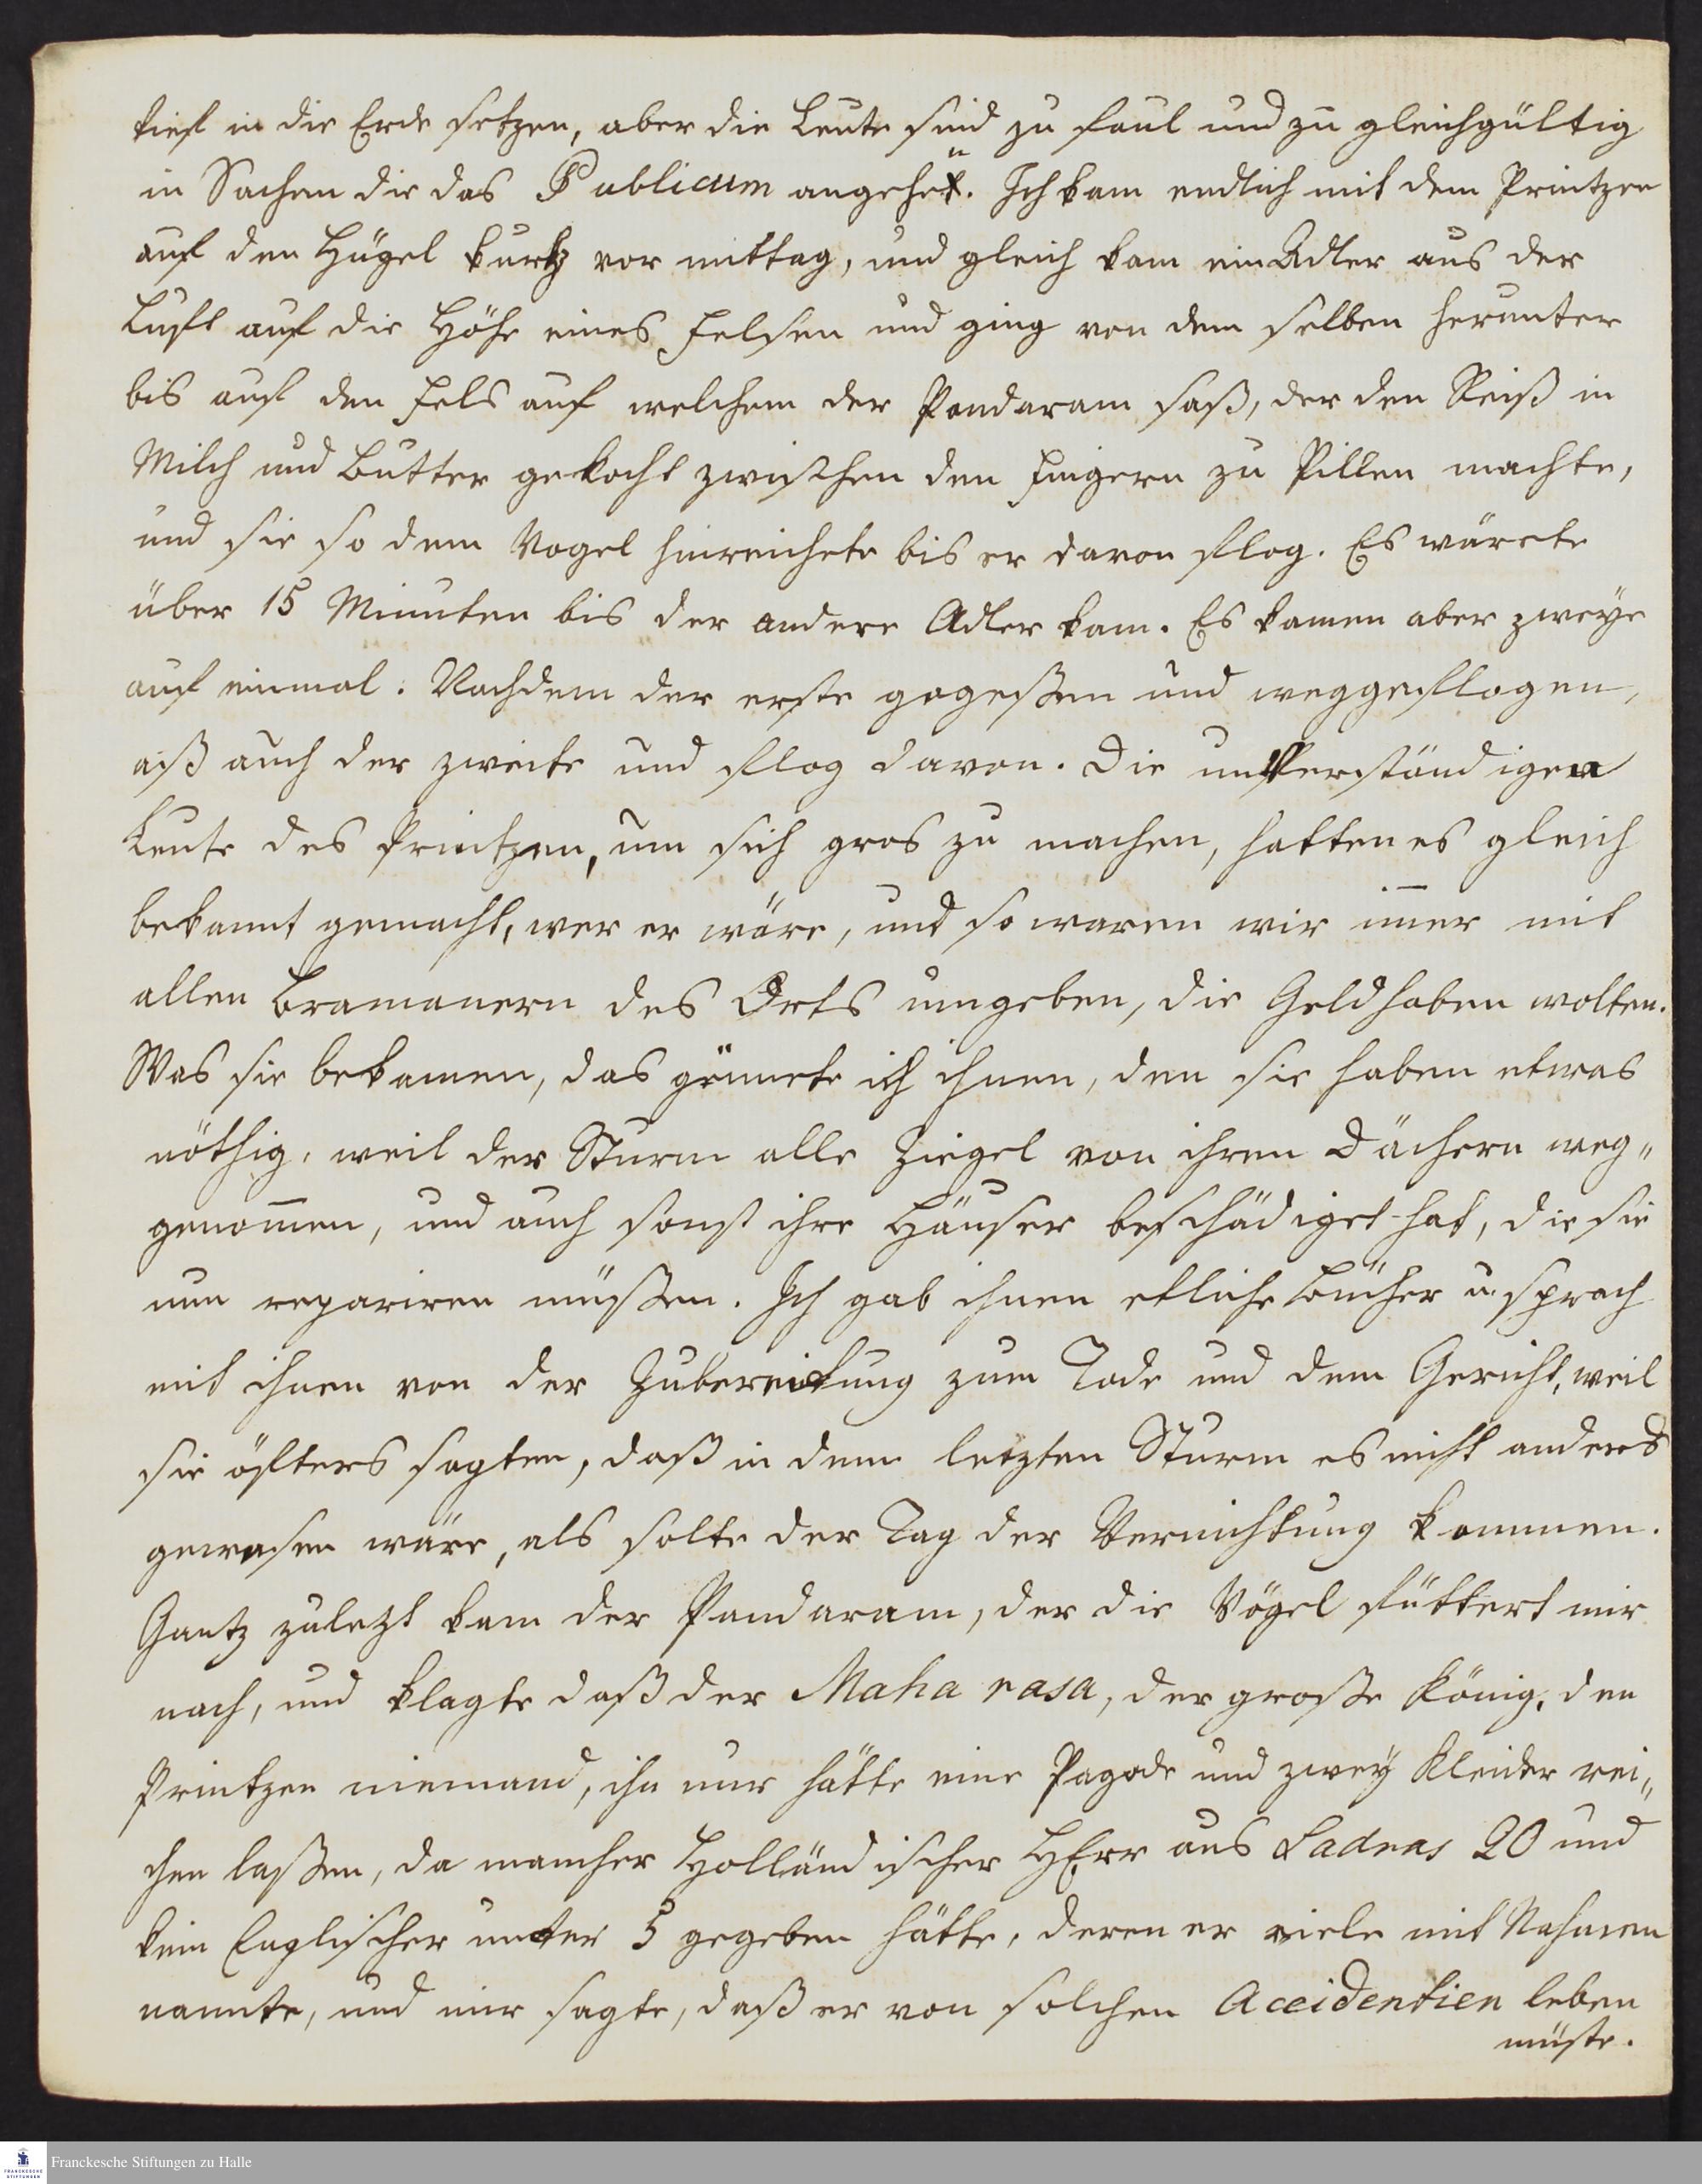 tief in die Erde setzen, aber die Leute sind zu faul und zu gleichgültig
in Sachen die das Publicum angehen. Ich kam endlich mit dem Printzen
auf den Hügel kurtz vor mittag, und gleich kam ein Adler aus der
Luft auf die Höhe eines Felsen und ging von dem selben herunter
bis auf den Fels auf welchem der Pandaram saß, der den Reiß in
Milch und Butter gekocht zwischen den Fingern zu Pillen machte,
und sie so dem Vogel hinreichete bis er davon flog. Es wärete
über 15 Minuten bis der andere Adler kam. Es kamen aber zweÿe
auf einmal. Nachdem der erste gegeßen und weggeflogen,
aß auch der zweite und flog davon. Die unverständigen
Leute des Printzen, um sich gros zu machen, hatten es gleich
bekannt gemacht, wer er wäre, und so waren wir im̅er mit
allen Bramanern des Orts umgeben, die Geld haben wolten.
Was sie bekamen, das gönnete ich ihnen, den sie haben etwas
nöthig, weil der Sturm alle Ziegel von ihren Dächern weg„
genom̅en, und auch sonst ihre Häuser beschädiget hat, die sie
nun repariren müßen. Ich gab ihnen etliche Bücher u. sprach
mit ihnen von der Zubereitung zum Tode und dem Gericht, weil
sie öfters sagten, daß in dem letzten Sturm es nicht anders
gewesen wäre, als solte der Tag der Vernichtung kommen.
Gantz zulezt kam der Pandaram, der die Vögel füttert mir
nach, und klagte daß der Maha rasa, der große König, den
Printzen niemand, ihn nur hätte eine Pagode und zweÿ Kleider rei„
chen laßen, da mancher Holländischer HErr aus Sadras 20 und
kein Englischer unter 5 gegeben hätte, deren er viele mit Nahmen
nannte, und mir sagte, daß er von solchen Accidentien leben
müste.
Franckesche Stiftungen zu Halle
FRANCKESCHE STIFTUNGEN